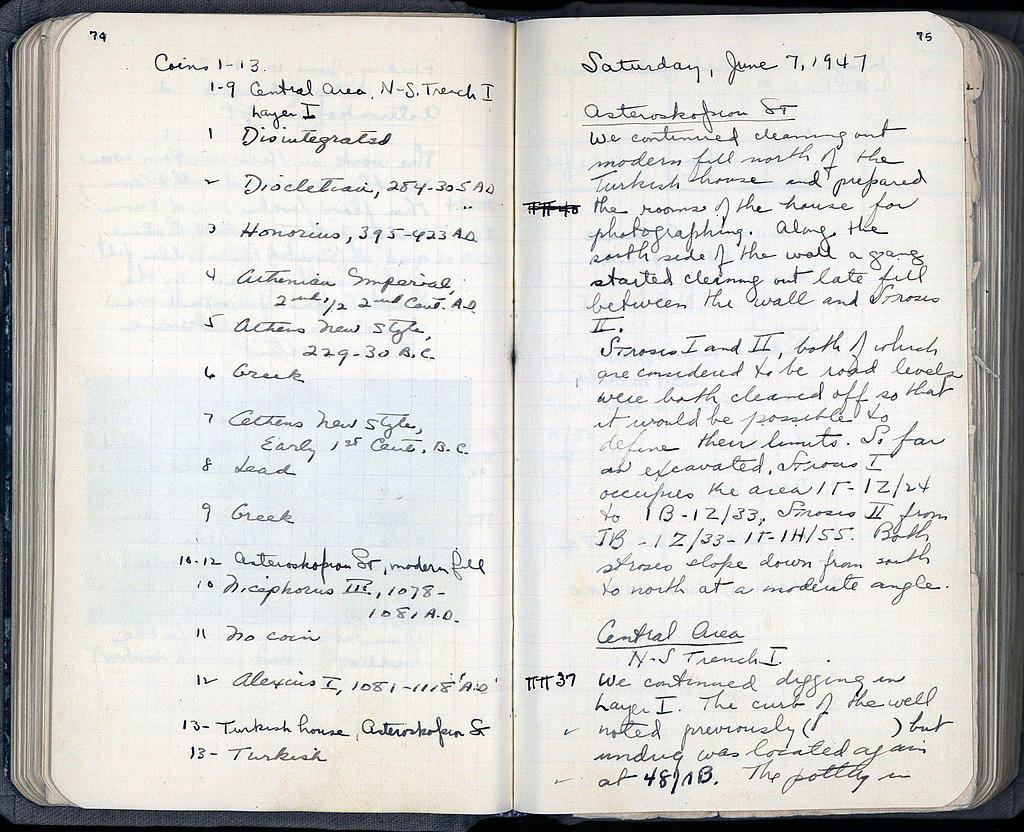 74
Coins 1-13.
1-9 Central Area, N-S. Trench I
Layer I
1 Disintegrated
2 Diocletian, 284-305 AD
3 Honorius, 395-423 A.D.
4 Athenian Imperial,
2nd 1/2 2nd Cent. A.D.
5 Athens New Style,
229-30 B.C.
6 Greek
7 Athens New Style,
Early 1st Cent. B.C.
8 Lead
9 Greek
10-12 Asteroskopion St, modern fill
10 Nicephorus III, 1078-
1081 A.D.
11 No coin
12 Alexius I, 1081-1118 A.D.
13- Turkish house, Asteroskopion St
13- Turkish
75
Saturday, June 7, 1947
Asteroskopion St
We continued cleaning out
modern fill north of the
Turkish house and prepared
ΠΠ 40 the rooms of the house for
photographing. Along the
south side of the wall a gang
started clearing out late fill
between the wall and Strosis
II.
Strosis I and II, both of which
are considered to be road levels
were both cleaned off so that
it would be possible to
define their limits. So far
as excavated, Strosis I
occupies the area 1Γ-1Z/24
to 1B-1Z/33, Strosis II from
1B-1Z/33-1Γ-1H/55. Both
stroses slope down from south
to north at a moderate angle.
Central Area
N-S Trench I.
ΠΠ 37 We continued digging in
Layer I. The curb of the well
noted previously ( ) but
undug was located again
at 48/1B. The pottery in